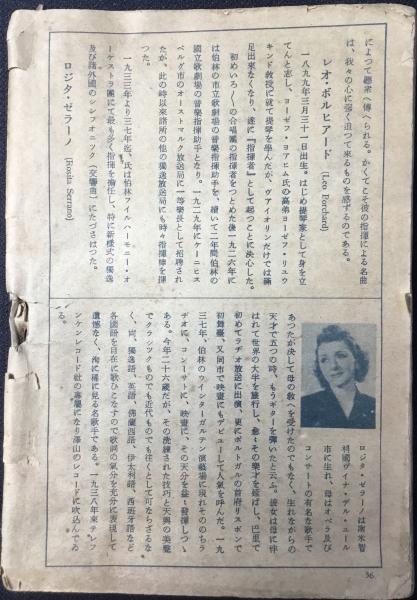 によつて聽衆へ傳へられる。かくてこそ彼の指揮による名曲
は、我々の心に强く迫つて來るものを感ずるのである。
レオ・ボルヒアード (Leo Borchard)
一八九九年三月三十一日出生。はじめ提琴家として身を立
てんと志し、ヨーゼフ・ヨアヒム氏の高弟ヨーゼフ・リュウ
キンド敎授に就て提琴を學んだが、ヴァイオリンだけでは滿
足出來なくなり、遂に『指揮者』として起つことに決心した。
初めいろ〱の合唱團の指揮者をつとめた後一九二六年に
は伯林の市立歌劇場の音樂指揮助手を、續いて二年間伯林の
國立歌劇場の音樂指揮助手となり。一九二九年にケーニヒス
ベルグ市のオーストマルク放送局に一等樂長として招聘され
たが、此の時以來諸所の他の獨逸放送局にも時々指揮棒を揮
つた。
一九三三年より三七年迄、氏は伯林フイルハーモニー・オ
ーケストラ團にて最も多く指揮を擔任し、特に新樣式の獨逸
及び諸外國のシンフォニック（交響曲）にたづさはつた。
ロジタ・セラーノ (Rosita Serrano)
ロジタ・セラーノは南米智
利國ヴイナ・デル・マール
市に生れ、母はオペラ及び
コンサートの有名な歌手で
あつたが決して母の敎へを受けたのでもなく、生れながらの
天才で五つの時、もうギターを彈いたと云ふ。彼女は母に伴
はれて世界の大半を旅行し、益々その樂才を延ばし、巴里で
初めてラヂオ放送に出演、更にポルトガルの首府リスボンで
初舞臺、又同市で映畫にもデビューして人氣を呼んだ。一九
三七年、伯林のウインターガルテン演藝場に現れそののちラ
ヂオに、コンサートに、映畫に、その天分を益々發揮しつゝ
ある。今年二十六歲だが、その洗練された技巧と天與の美聲
でクラシックものでも近代ものでも往くとして可ならざるな
く、而、獨逸語、英語、佛蘭西語、伊太利語、西班牙語など
各國語を自在に歌ひこなすので歌詞の氣分を充分に表現して
遺憾なく、洵に稀に見る名歌手である。一九三八年來テレフ
ンケンレコード社の專屬になり澤山のレコードに吹込んでゐ
る。
36